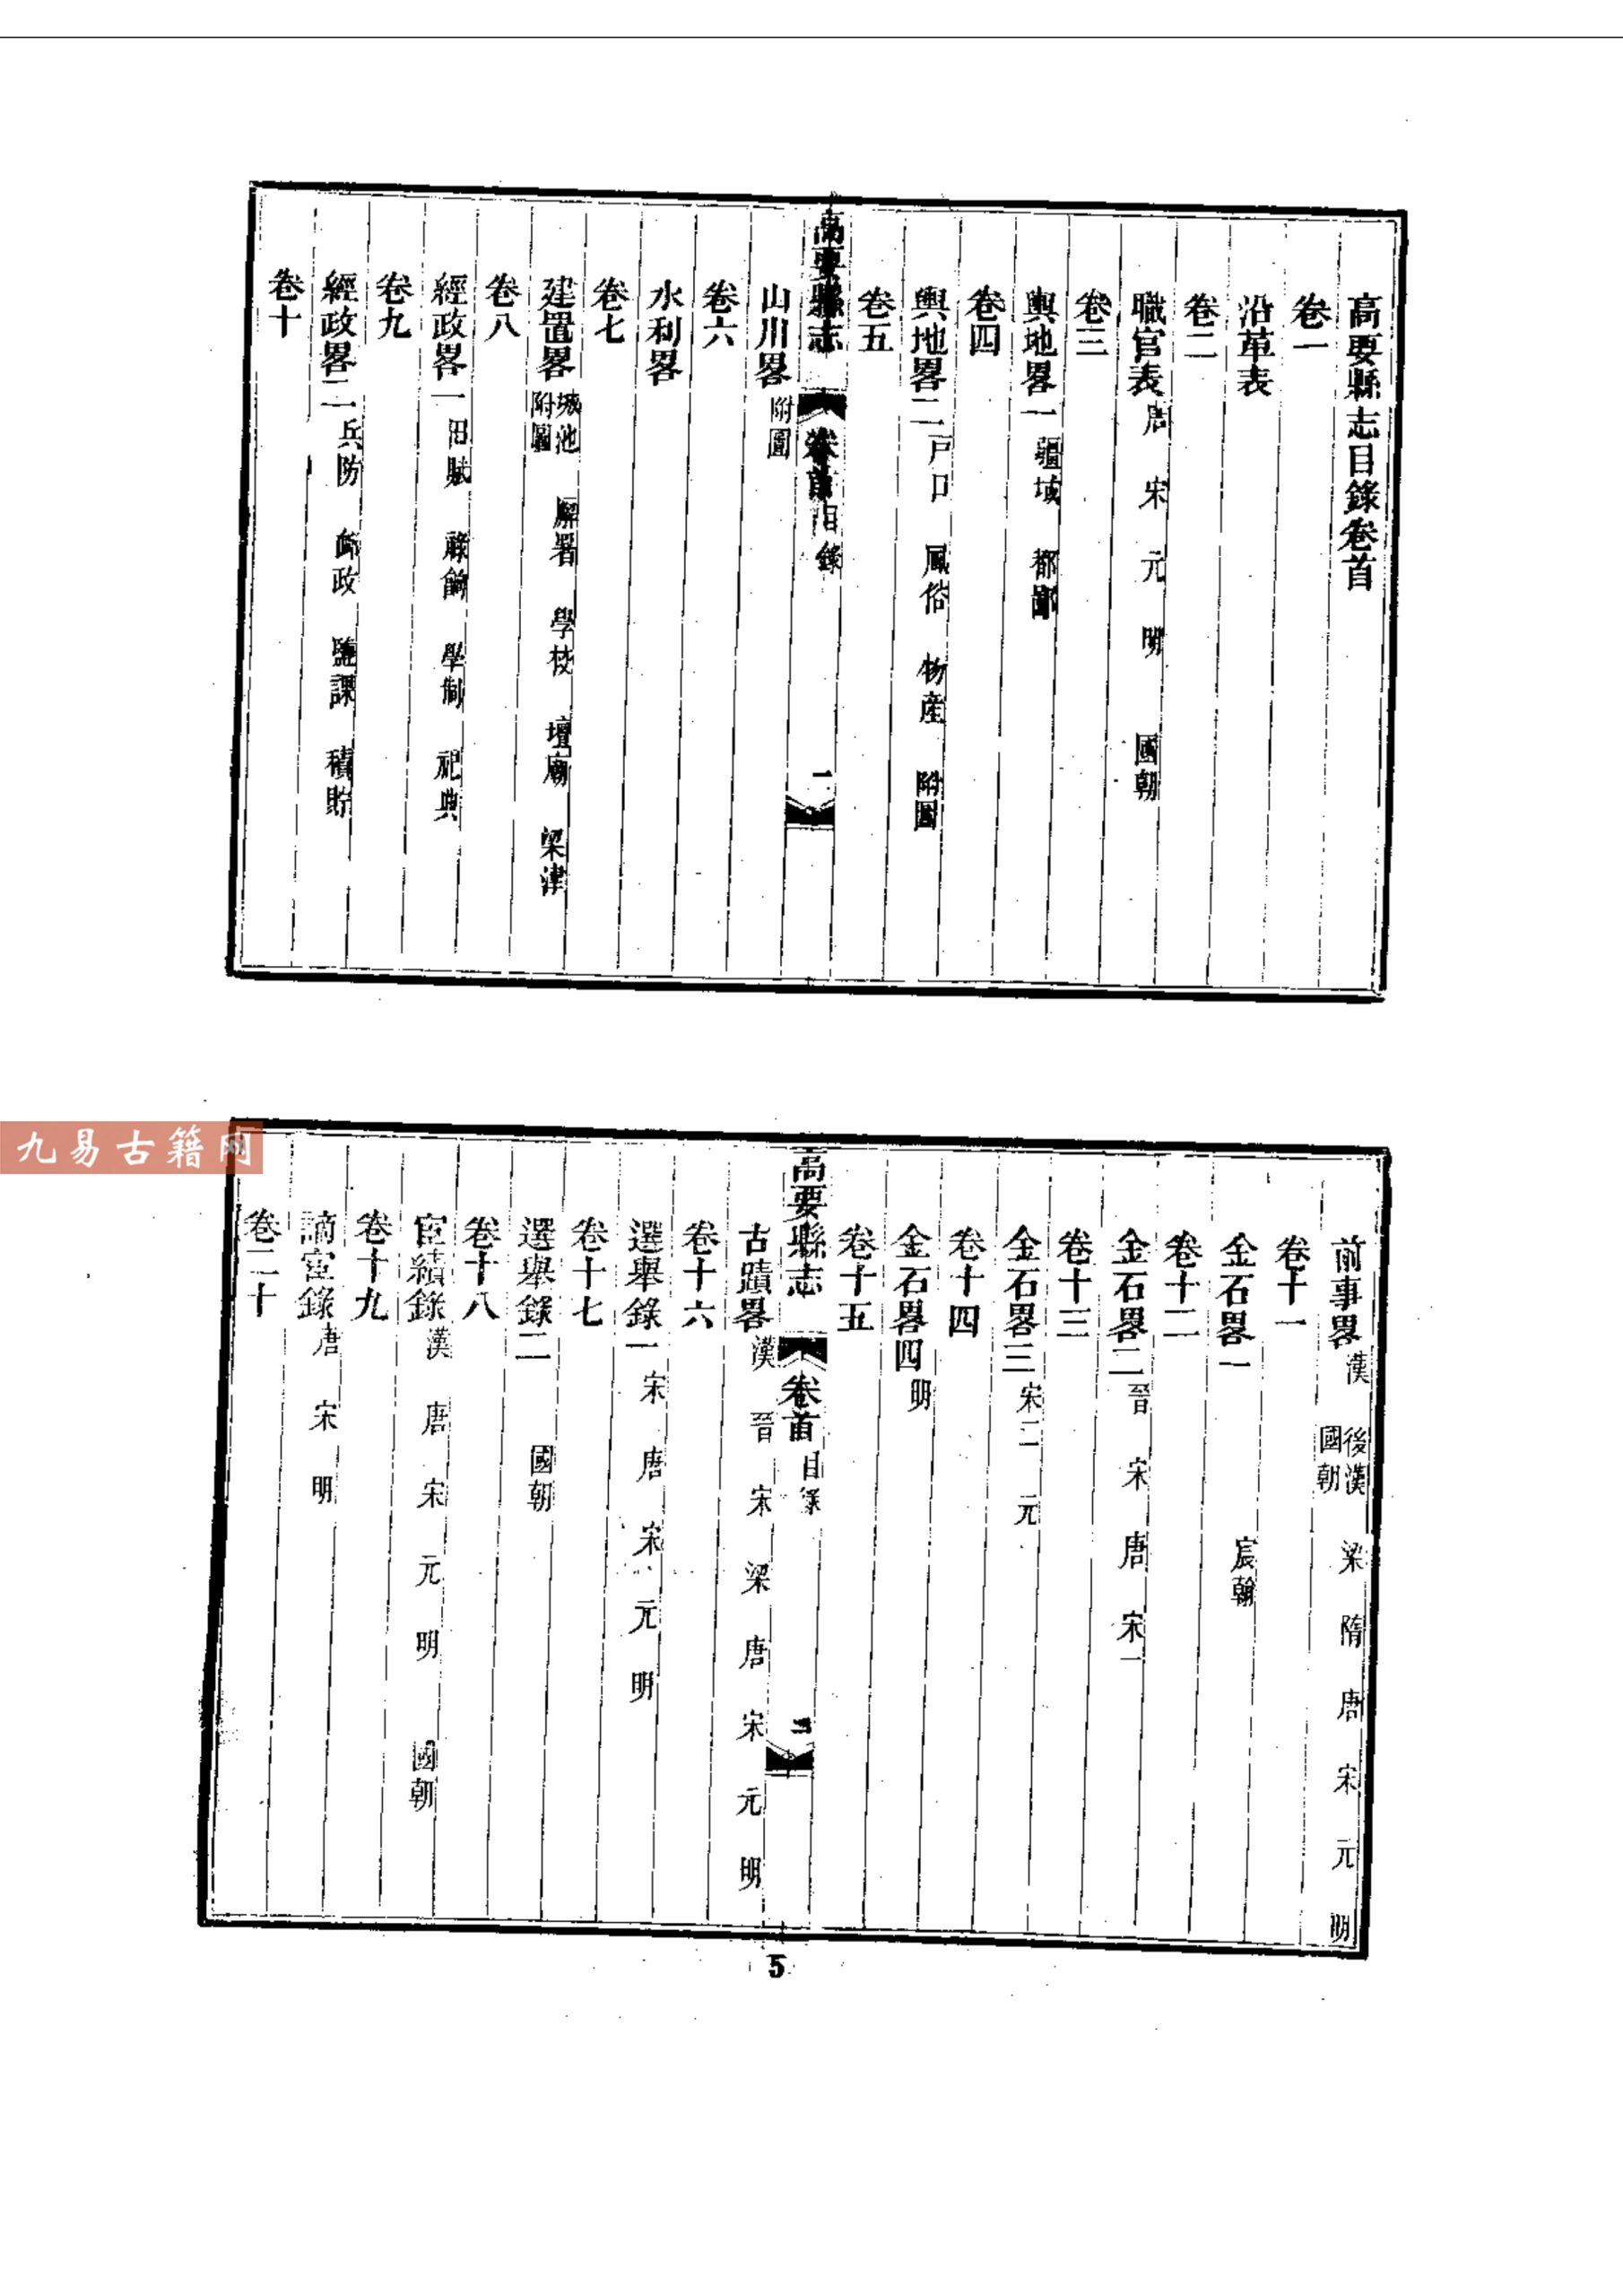 高要縣志目錄卷首
卷一
沿革表
卷二
職官表 唐 宋 元 明 國朝
卷三
輿地畧一 疆域 都鄙
卷四
輿地畧二 戶口 風俗 物産 附圖
卷五
高要縣志 卷首 目錄 一
山川畧 附圖
卷六
水利畧
卷七
建置畧 城池 廨署 學校 壇廟 梁津 附圖
卷八
經政畧一 田賦 祿餉 學制 祀典
卷九
經政畧二 兵防 郵政 鹽課 積貯
卷十
九易古籍网
前事畧 漢 後漢 梁 隋 唐 宋 元 明 國朝
卷十一
金石畧一 宸翰
卷十二
金石畧二 晉 宋 唐 宋一
卷十三
金石畧三 宋二 元
卷十四
金石畧四 明
卷十五
高要縣志 卷首 目錄 二
古蹟畧 漢 晉 宋 梁 唐 宋 元 明
卷十六
選舉錄一 宋 唐 宋 元 明
卷十七
選舉錄二 國朝
卷十八
宦績錄 漢 唐 宋 元 明 國朝
卷十九
謫宦錄 唐 宋 明
卷二十
5